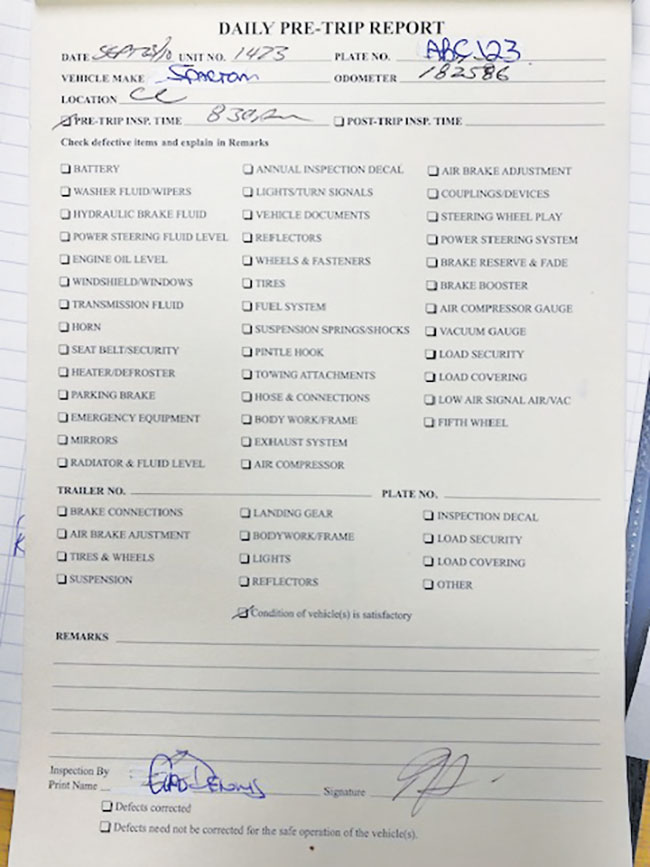 DAILY PRE-TRIP REPORT
DATE SEPT 25/10 UNIT NO. 1473 PLATE NO. ABC 123
VEHICLE MAKE Spartan ODOMETER 182586
LOCATION
PRE-TRIP INSP. TIME 830am POST-TRIP INSP. TIME
Check defective items and explain in Remarks
BATTERY ANNUAL INSPECTION DECAL AIR BRAKE ADJUSTMENT
WASHER FLUID/WIPERS LIGHTS/TURN SIGNALS COUPLINGS/DEVICES
HYDRAULIC BRAKE FLUID VEHICLE DOCUMENTS STEERING WHEEL PLAY
POWER STEERING FLUID LEVEL REFLECTORS POWER STEERING SYSTEM
ENGINE OIL LEVEL WHEELS & FASTENERS BRAKE RESERVE & FADE
WINDSHIELD/WINDOWS TIRES BRAKE BOOSTER
TRANSMISSION FLUID FUEL SYSTEM AIR COMPRESSOR GAUGE
HORN SUSPENSION SPRINGS/SHOCKS VACUUM GAUGE
SEAT BELT/SECURITY PINTLE HOOK LOAD SECURITY
HEATER/DEFROSTER TOWING ATTACHMENTS LOAD COVERING
PARKING BRAKE HOSE & CONNECTIONS LOW AIR SIGNAL AIR/VAC
EMERGENCY EQUIPMENT BODY WORK/FRAME FIFTH WHEEL
MIRRORS EXHAUST SYSTEM
RADIATOR & FLUID LEVEL AIR COMPRESSOR
TRAILER NO. PLATE NO.
BRAKE CONNECTIONS LANDING GEAR INSPECTION DECAL
AIR BRAKE AJUSTMENT BODYWORK/FRAME LOAD SECURITY
TIRES & WHEELS LIGHTS LOAD COVERING
SUSPENSION REFLECTORS OTHER
Condition of vehicle(s) is satisfactory
REMARKS
Inspection By
Print Name Dennis Signature
Defects corrected
Defects need not be corrected for the safe operation of the vehicle(s).